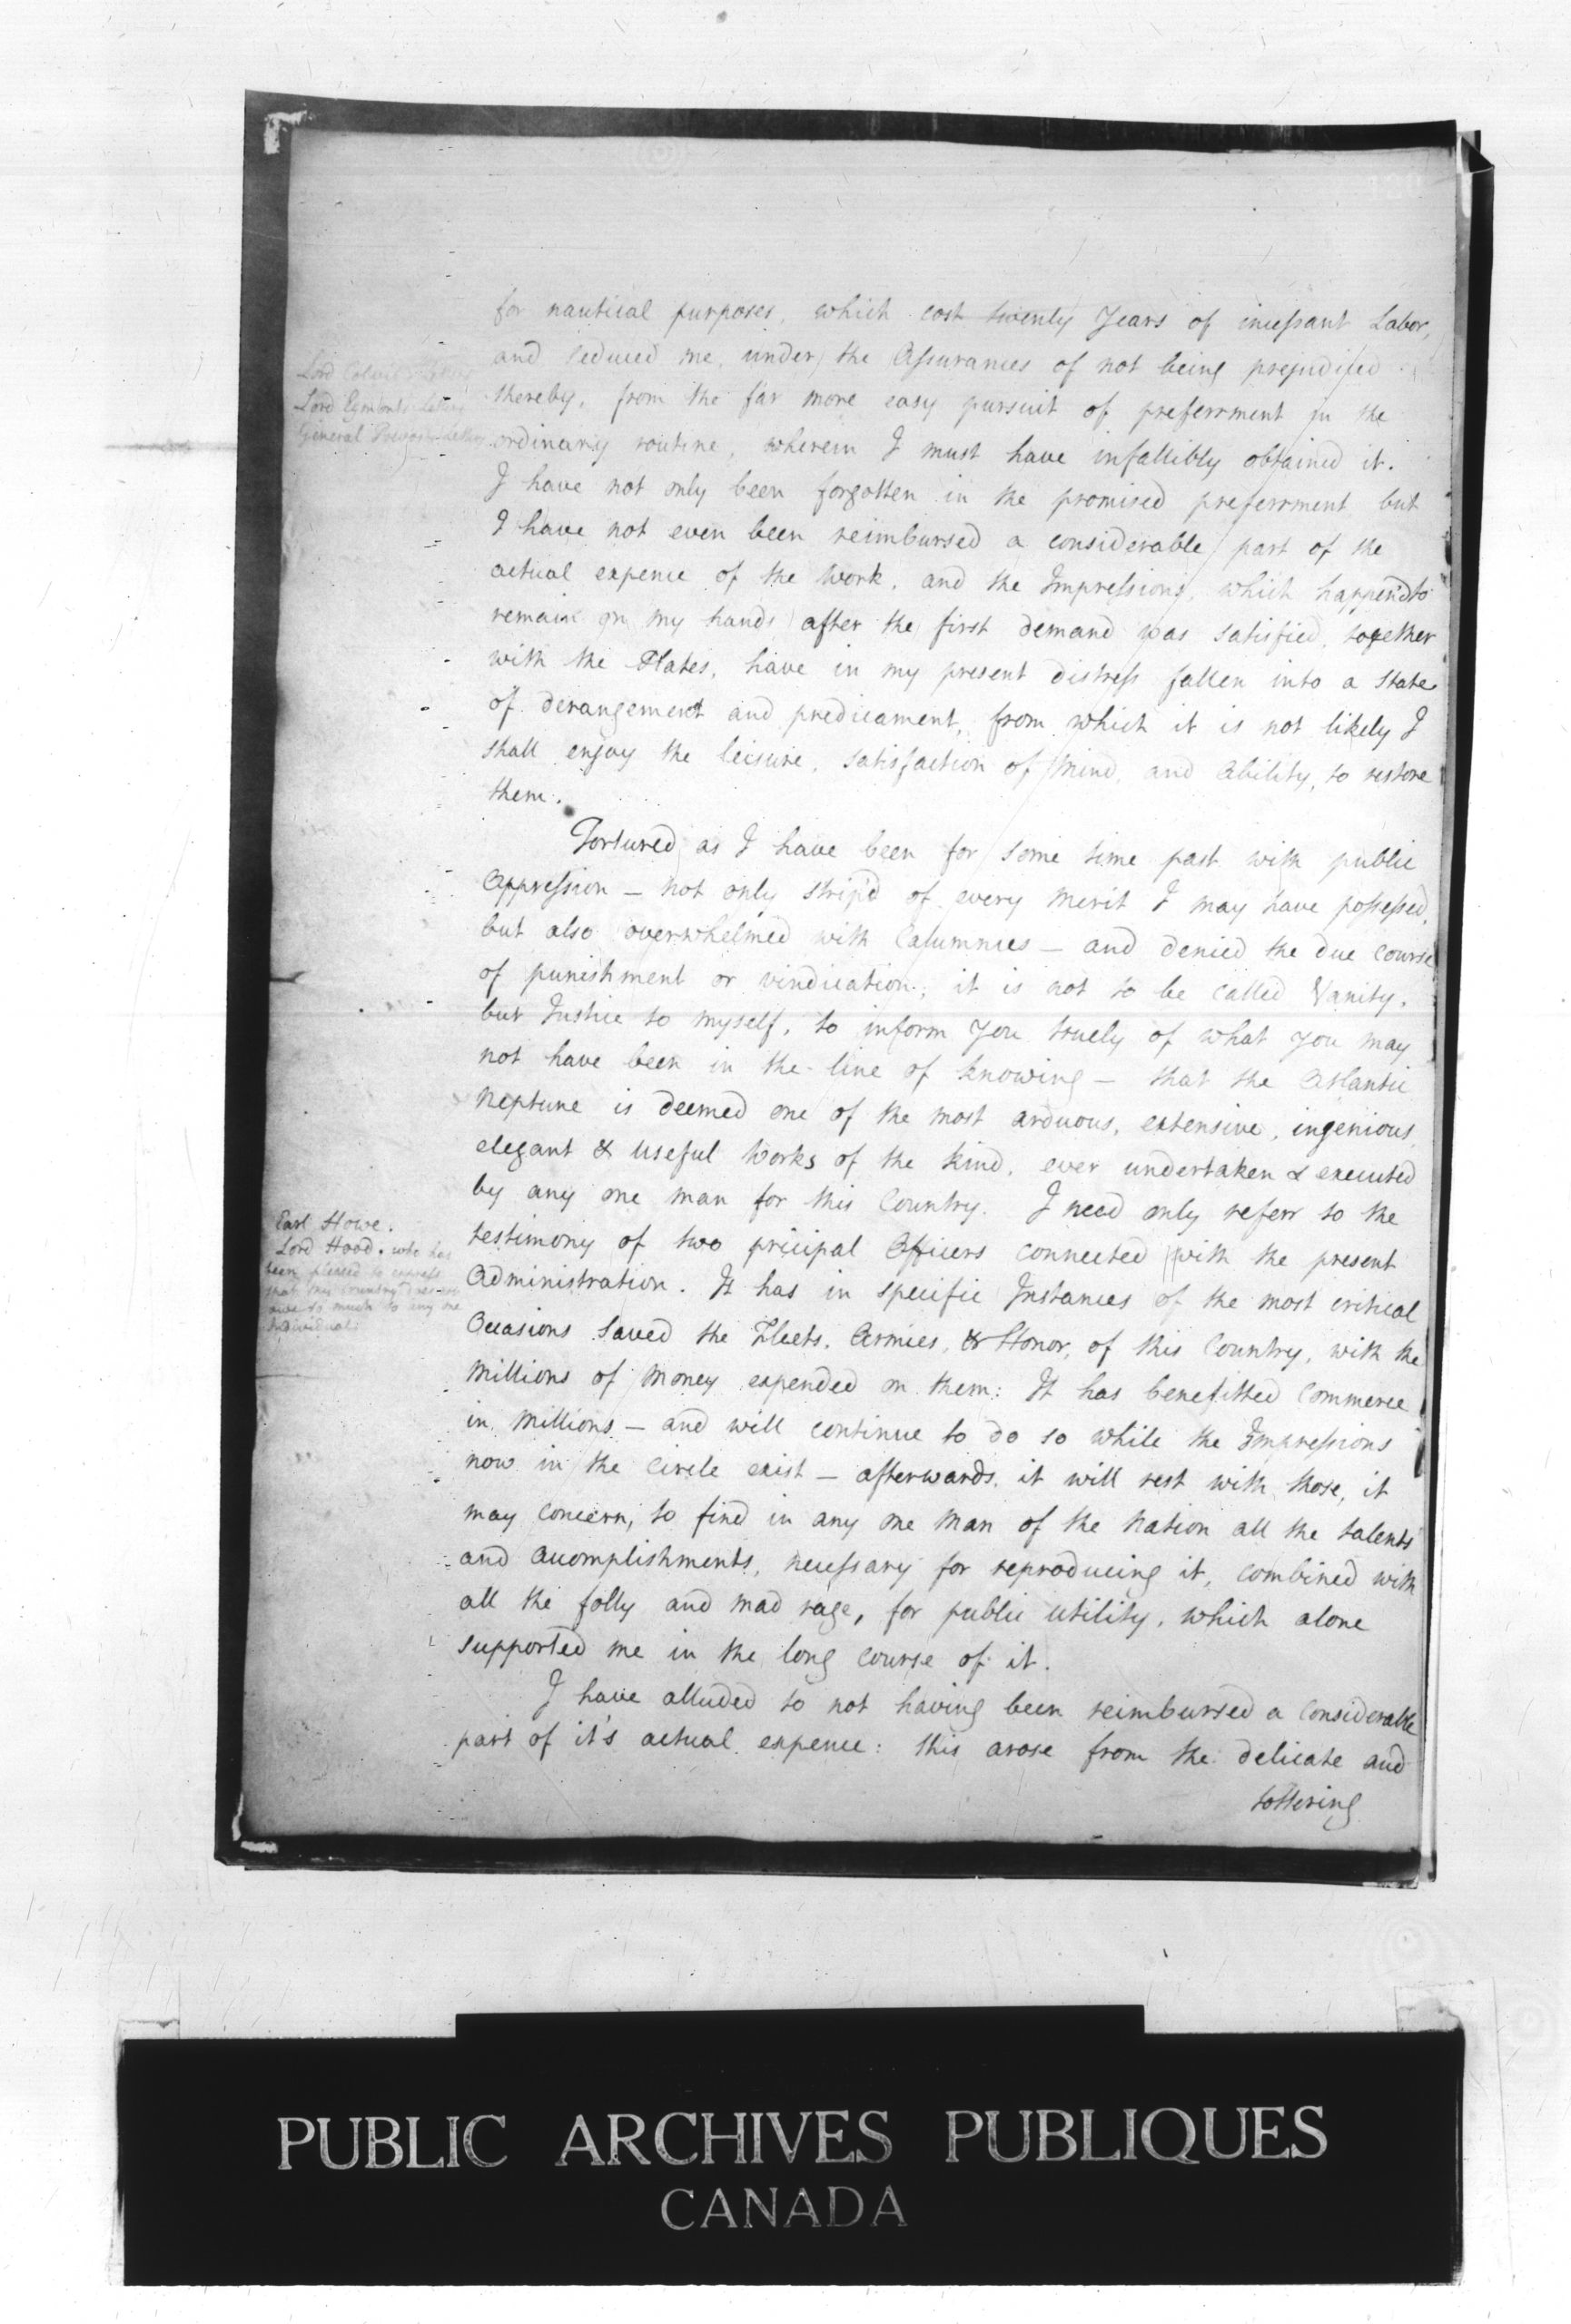 for nautical purposes, which cost twenty Years of incessant Labor,
and seduced me, under the Assurances of not being prejudised
thereby, from the far more easy pursuit of preferrment in the
ordinary routine, wherein I must have infallibly obtained it.
Lord Colvil
Lord Egmont's Letter
General Letter
I have not only been forgotten in the promised preferrment but
I have not even been reimbursed a considerable part of the
actual expence of the Work, and the Impressions, which happen'd to
remain on my hands after the first demand was satisfied, together
with the Plates, have in my present distress fallen into a State
of derangement and predicament, from which it is not likely I
shall enjoy the leisure, satisfaction of Mind, and Ability, to restore
them.
Tortured as I have been for some time past with public
Oppression — not only strip'd of every Merit I may have possessed,
but also overwhelmed with Calumnies — and denied the due Course
of punishment or vindication; it is not to be called Vanity,
but Justice to myself, to inform You truely of what You may
not have been in the line of knowing — that the Atlantic
Neptune is deemed one of the most arduous, extensive, ingenious,
elegant & useful Works of the kind, ever undertaken & executed
by any one Man for this Country. I need only referr to the
testimony of two pricipal Officers connected with the present
Administration. It has in specific Instances of the most critical
Occasions saved the Fleets, Armies, & Honor, of this Country, with the
Millions of Money expended on them: It has benefitted Commerce
in Millions — and will continue to do so while the Impressions
now in the Circle exist — afterwards, it will rest with those, it
may concern, to find in any one Man of the Nation all the talents
and accomplishments, necessary for reproducing it, combined with
all the folly and mad rage, for public utility, which alone
supported me in the long course of it.
Earl Howe.
Lord Hood. who has
been pleased to express
that my country does not
owe so much to any one
Individual.
I have alluded to not having been reimbursed a Considerable
part of it's actual expence: this arose from the delicate and
tottering
PUBLIC ARCHIVES PUBLIQUES
CANADA